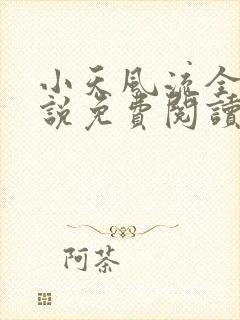 小天風流全
說免費閱讀
阿茶